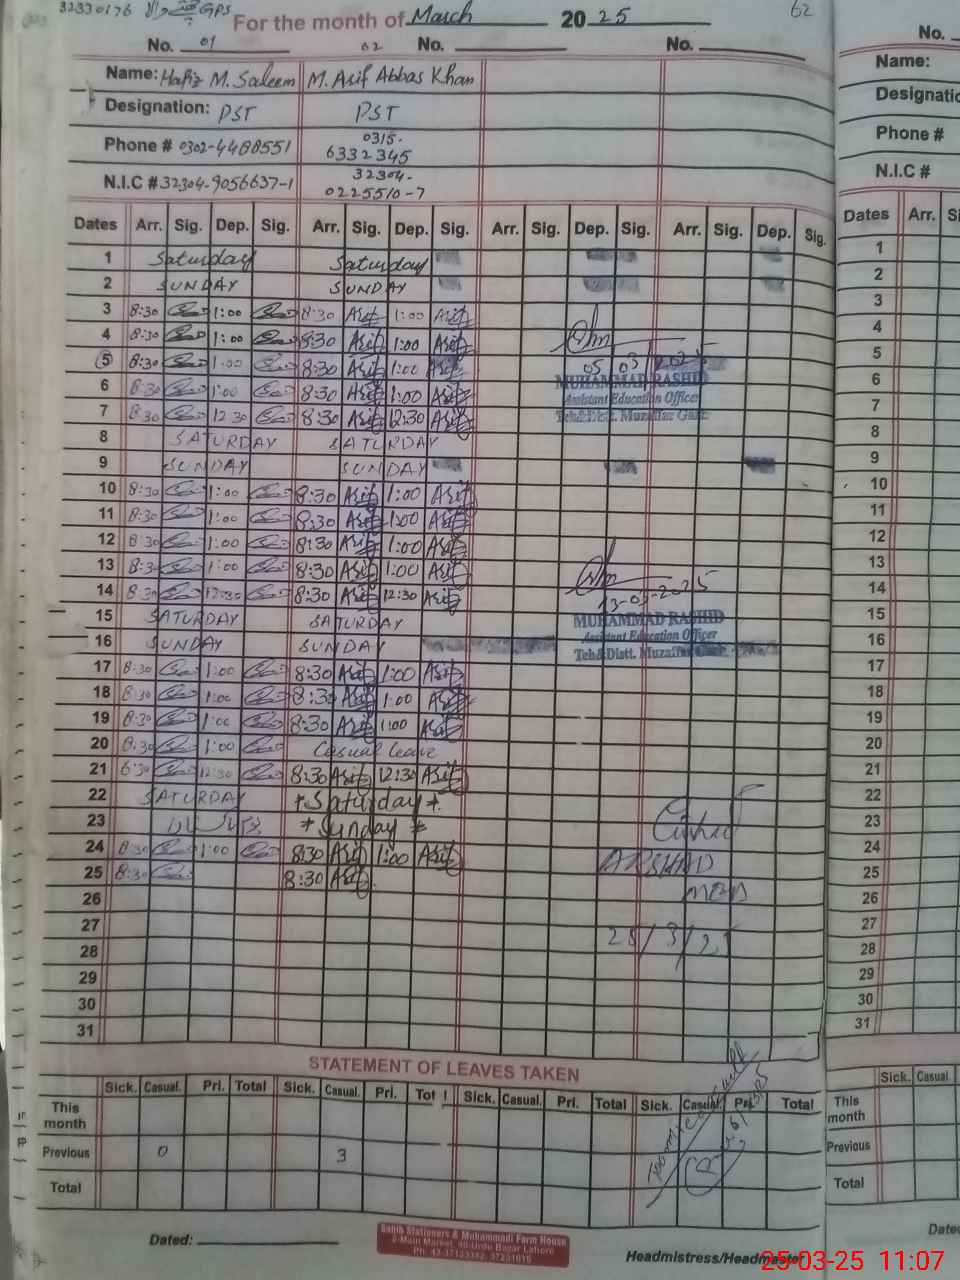 32330176 GPS
For the month of March 2025 62
No. 01 02 No. No.
Name: Hafiz M. Saleem M. Asif Abbas Khan
Designation: PST PST
Phone # 0302-4488551 0315-6332345
N.I.C # 32304-9056637-1 32304-0225510-7
Dates Arr. Sig. Dep. Sig. Arr. Sig. Dep. Sig. Arr. Sig. Dep. Sig. Arr. Sig. Dep. Sig.
1 Saturday Saturday
2 SUNDAY SUNDAY
3 8:30 1:00 8:30 Asif 1:00 Asif
4 8:30 1:00 8:30 Asif 1:00 Asif
5 8:30 1:00 8:30 Asif 1:00 Asif
05 03 2025
6 8:30 1:00 8:30 Asif 1:00 Asif
MUHAMMAD RASHID
Assistant Education Officer
7 8:30 12:30 8:30 Asif 12:30 Asif
Teh&Distt. Muzaffar Garh
8 SATURDAY SATURDAY
9 SUNDAY SUNDAY
10 8:30 1:00 8:30 Asif 1:00 Asif
11 8:30 1:00 8:30 Asif 1:00 Asif
12 8:30 1:00 8:30 Asif 1:00 Asif
13 8:30 1:00 8:30 Asif 1:00 Asif
14 8:30 12:30 8:30 Asif 12:30 Asif
13-03-2025
15 SATURDAY SATURDAY
MUHAMMAD RASHID
Assistant Education Officer
16 SUNDAY SUNDAY
Teh&Distt. Muzaffar Garh
17 8:30 1:00 8:30 Asif 1:00 Asif
18 8:30 1:00 8:30 Asif 1:00 Asif
19 8:30 1:00 8:30 Asif 1:00 Asif
20 8:30 1:00 Casual leave
21 8:30 12:30 8:30 Asif 12:30 Asif
22 SATURDAY *Saturday*
23 *Sunday*
24 8:30 1:00 8:30 Asif 1:00 Asif
25 8:30 8:30 Asif
ARSHAD
26
MEA
27
25/3/25
28
29
30
31
STATEMENT OF LEAVES TAKEN
Sick. Casual. Pri. Total Sick. Casual. Pri. Total Sick. Casual. Pri. Total Sick. Casual. Pri. Total
This month
Previous 0 3
Total
Dated:
Sahib Stationers & Muhammadi Farm House
2-Main Market, 40-Urdu Bazar Lahore
Headmistress/Headmaster
No.
Name:
Designatio
Phone #
N.I.C #
Dates Arr. Si
1
2
3
4
5
6
7
8
9
10
11
12
13
14
15
16
17
18
19
20
21
22
23
24
25
26
27
28
29
30
31
Sick. Casual
This month
Previous
Total
Date
25-03-25 11:07